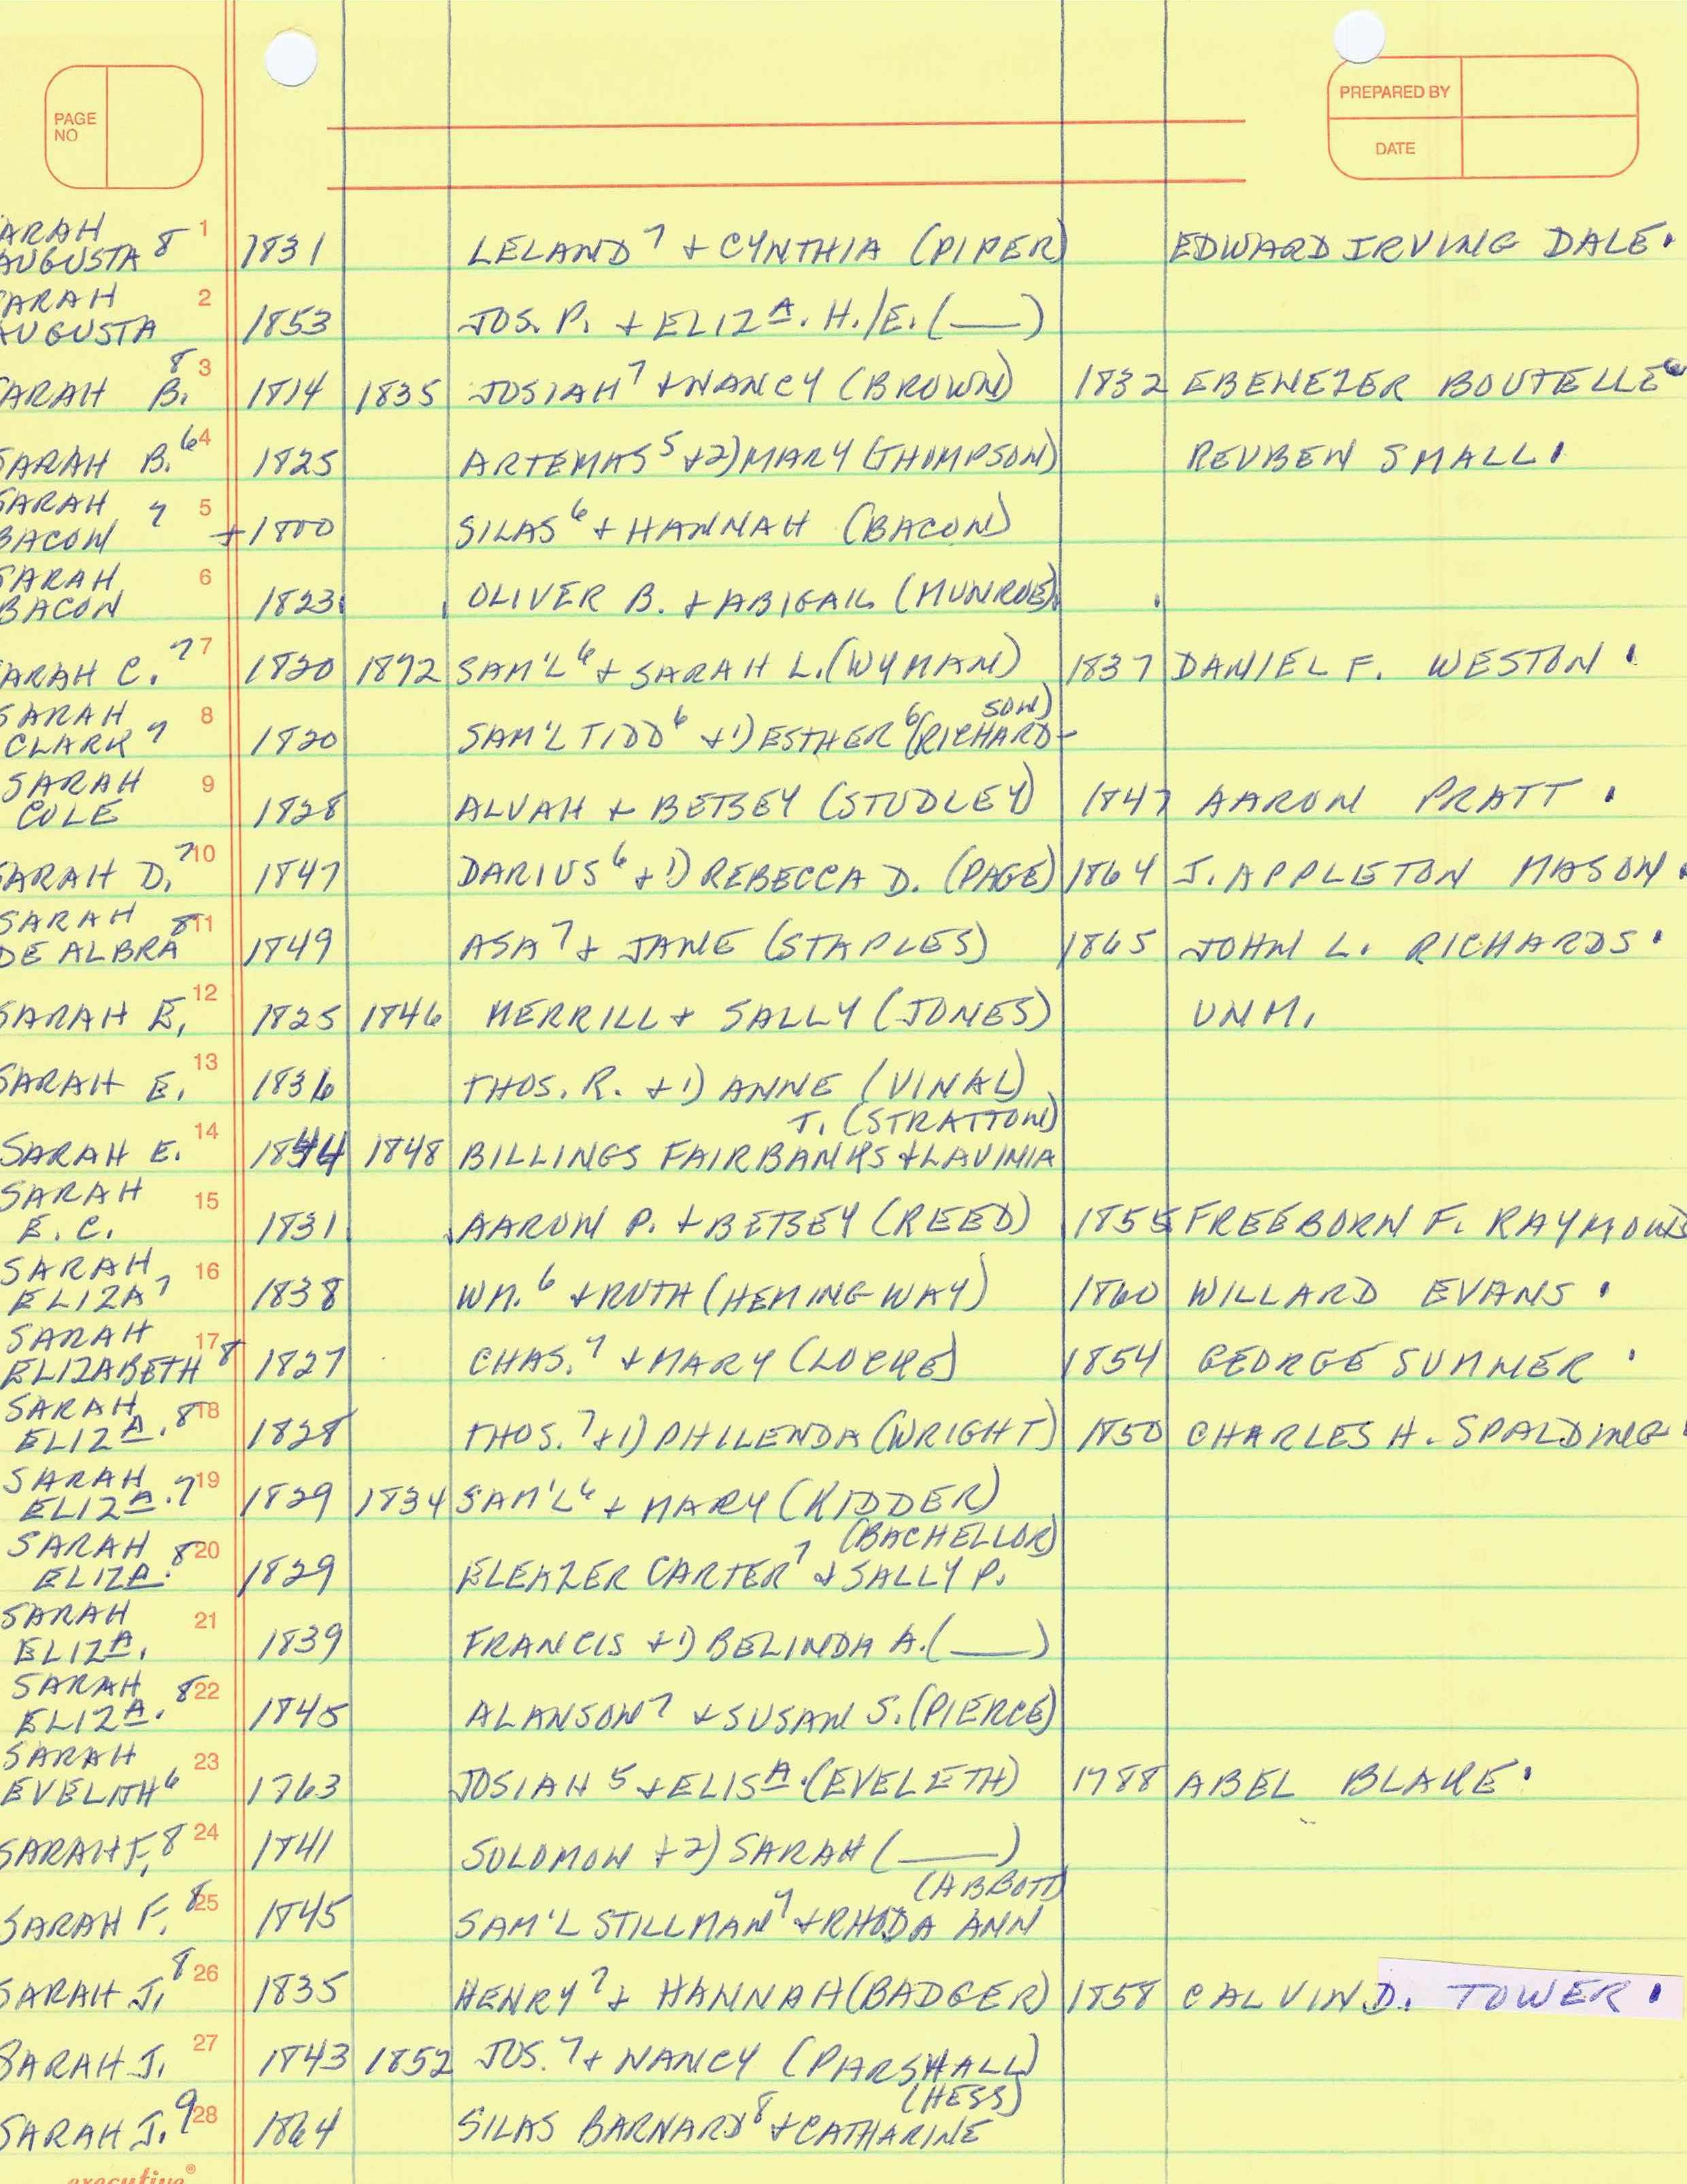 PAGE NO
PREPARED BY
DATE
ARAH AUGUSTA 8 1 1831 LELAND 7 + CYNTHIA (PIPER) EDWARD IRVING DALE.
ARAH AUGUSTA 2 1853 JOS. P. + ELIZA. H./E. (___)
ARAH B. 8 3 1814 1835 JOSIAH 7 + NANCY (BROWN) 1832 EBENEZER BOUTELLE
SARAH B. 6 4 1825 ARTEMAS 5 +2) MARY (THOMPSON) REUBEN SMALL.
SARAH BACON 7 5 +1800 SILAS 6 + HANNAH (BACON)
SARAH BACON 6 1823. OLIVER B. + ABIGAIL (MUNROE).
ARAH C. 7 7 1820 1892 SAM'L 6 + SARAH L. (WYMAN) 1837 DANIEL F. WESTON.
SARAH CLARK 7 8 1820 SAM'L TIDD 6 +1) ESTHER 6 (RICHARD-SON)
SARAH COLE 9 1828 ALVAH + BETSEY (STUDLEY) 1847 AARON PRATT.
ARAH D. 7 10 1847 DARIUS 6 +1) REBECCA D. (PAGE) 1864 J. APPLETON MASON.
SARAH DE ALBRA 8 11 1849 ASA 7 + JANE (STAPLES) 1865 JOHN L. RICHARDS.
SARAH E. 12 1825 1846 MERRILL + SALLY (JONES) UNM.
SARAH E. 13 1836 THOS. R. +1) ANNE (VINAL)
SARAH E. 14 1844 1848 BILLINGS FAIRBANKS + LAVINIA T. (STRATTON)
SARAH E. C. 15 1831 AARON P. + BETSEY (REED) 1855 FREEBORN F. RAYMOND
SARAH ELIZA 7 16 1838 WM. 6 + RUTH (HEMINGWAY) 1860 WILLARD EVANS.
SARAH ELIZABETH 8 17 1827 CHAS. 7 + MARY (LOCKE) 1854 GEORGE SUMNER.
SARAH ELIZA. 8 18 1828 THOS. 7 +1) PHILENDA (WRIGHT) 1850 CHARLES H. SPALDING.
SARAH ELIZA. 7 19 1829 1834 SAM'L 6 + MARY (KIDDER)
SARAH ELIZA. 8 20 1829 ELEAZER CARTER 7 + SALLY P. (BACHELLOR)
SARAH ELIZA. 21 1839 FRANCIS +1) BELINDA A. (___)
SARAH ELIZA. 8 22 1845 ALANSON 7 + SUSAN S. (PIERCE)
SARAH EVELITH 6 23 1763 JOSIAH 5 + ELISA. (EVELETH) 1788 ABEL BLAKE.
SARAH F. 8 24 1841 SOLOMON +2) SARAH (___)
SARAH F. 8 25 1845 SAM'L STILLMAN 7 + RHODA ANN (ABBOTT)
SARAH J. 8 26 1835 HENRY 7 + HANNAH (BADGER) 1858 CALVIN D. TOWER.
SARAH J. 27 1843 1852 JOS. 7 + NANCY (PARSHALL)
SARAH J. 9 28 1864 SILAS BARNARD 8 + CATHARINE (HESS)
executive®